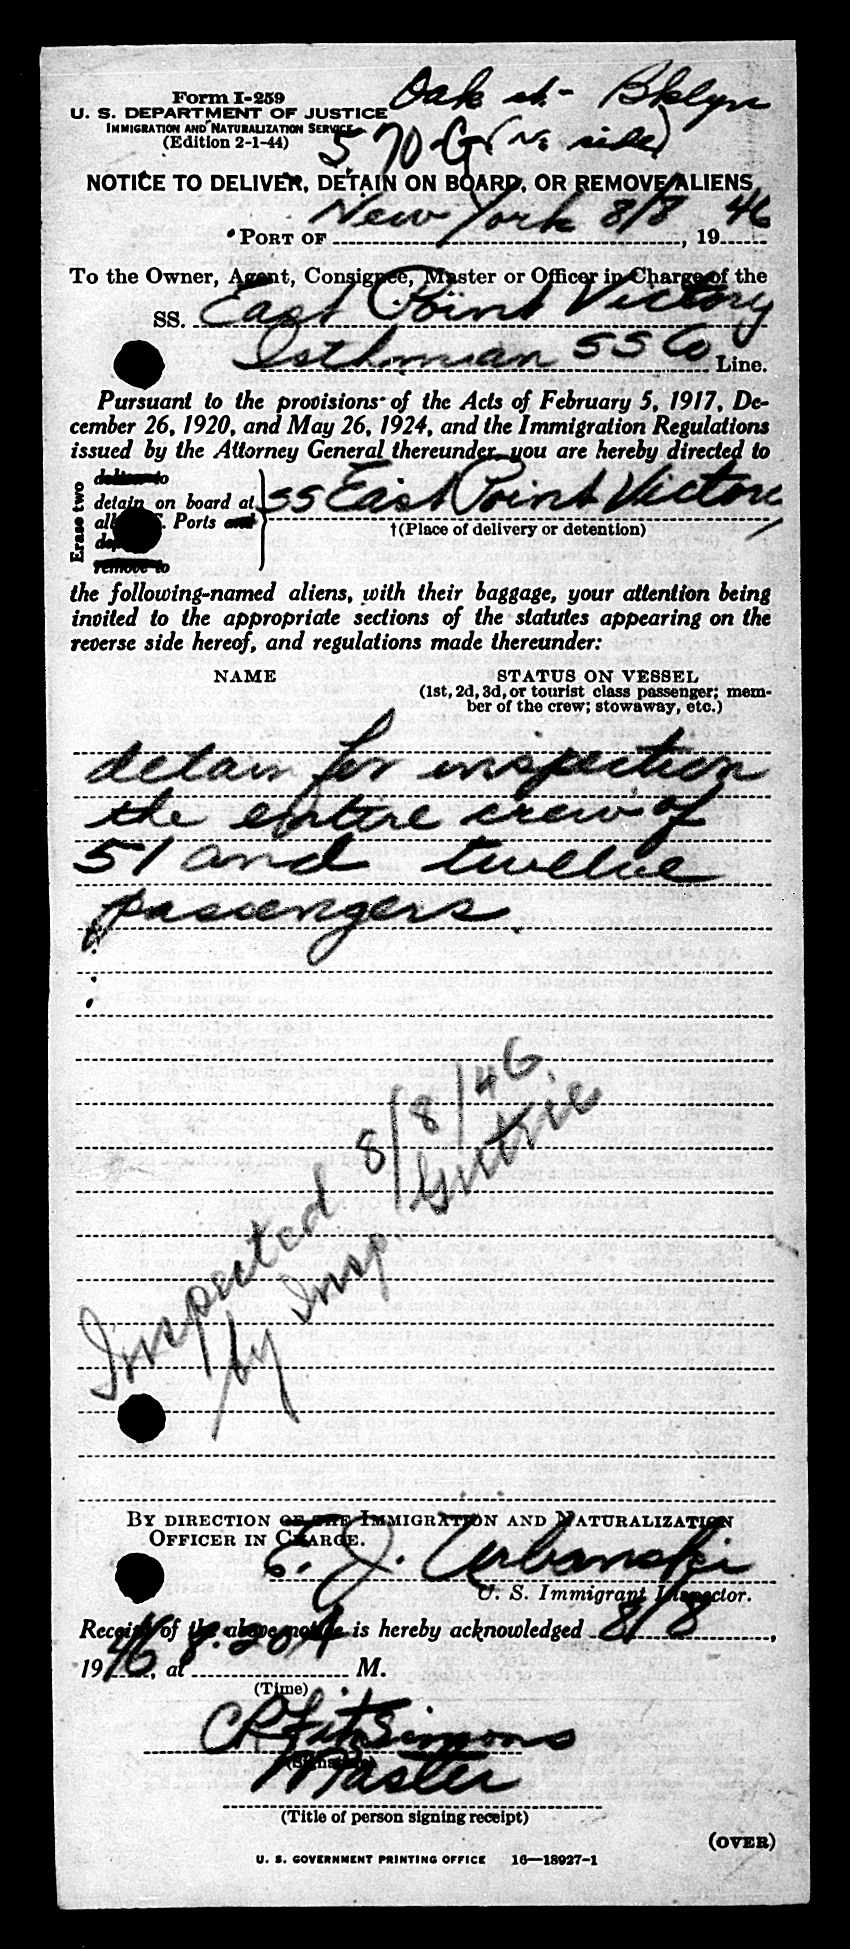 Form I-259
U. S. DEPARTMENT OF JUSTICE
IMMIGRATION AND NATURALIZATION SERVICE
(Edition 2-1-44)
Oak st- Bklyn
570-G (No side)
NOTICE TO DELIVER, DETAIN ON BOARD, OR REMOVE ALIENS
PORT OF New York 8/8, 1946
To the Owner, Agent, Consignee, Master or Officer in Charge of the
SS. East Point Victory
Isthmian SS Co Line.
Pursuant to the provisions of the Acts of February 5, 1917, De-
cember 26, 1920, and May 26, 1924, and the Immigration Regulations
issued by the Attorney General thereunder you are hereby directed to
Erase two
deliver to
detain on board at
all Ports and
remove to
SS East Point Victory
†(Place of delivery or detention)
the following-named aliens, with their baggage, your attention being
invited to the appropriate sections of the statutes appearing on the
reverse side hereof, and regulations made thereunder:
NAME STATUS ON VESSEL
(1st, 2d, 3d, or tourist class passenger; mem-
ber of the crew; stowaway, etc.)
detain for inspection
the entire crew of
51 and twelve
passengers.
Inspected 8/8/46
by Insp. Gutrie
BY DIRECTION OF THE IMMIGRATION AND NATURALIZATION
OFFICER IN CHARGE.
E. J. Urbanski
U. S. Immigrant Inspector.
Receipt of the above notice is hereby acknowledged 8/8,
1946, at 8:20 A M.
(Time)
CR FitzSimons
(Signature)
Master
(Title of person signing receipt)
(OVER)
U. S. GOVERNMENT PRINTING OFFICE 16—18927-1